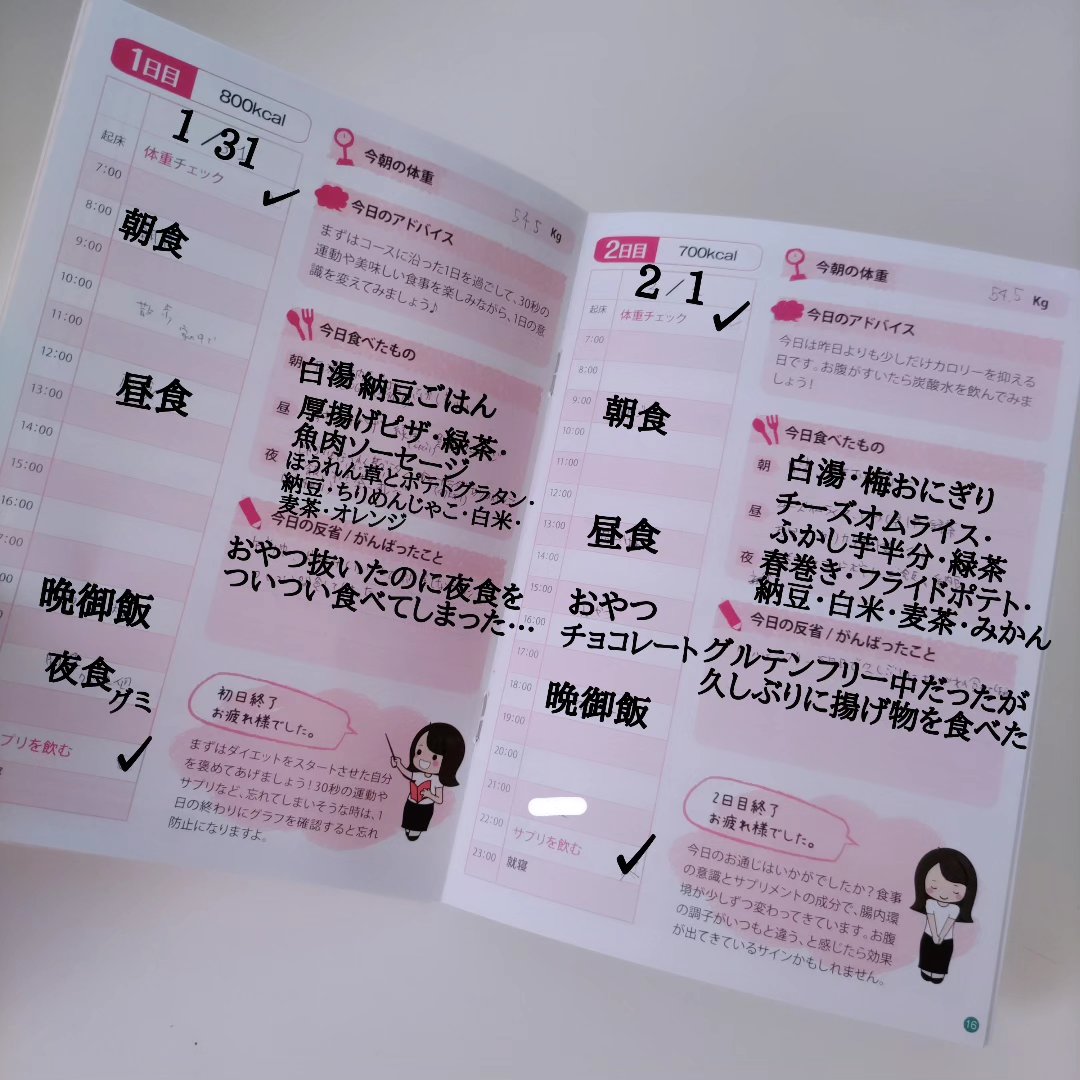 1日目
800kcal
1/31
起床
体重チェック
7:00
8:00
朝食
9:00
10:00
11:00
12:00
昼食
13:00
14:00
15:00
16:00
7:00
晩御飯
夜食
グミ
プリを飲む
今朝の体重
54.5 Kg
今日のアドバイス
まずはコースに沿った1日を過ごして、30秒の
運動や美味しい食事を楽しみながら、1日の意
識を変えてみましょう♪
今日食べたもの
朝
白湯 納豆ごはん
昼
厚揚げピザ・緑茶・
魚肉ソーセージ
夜
ほうれん草とポテトグラタン・
納豆・ちりめんじゃこ・白米・
麦茶・オレンジ
今日の反省/がんばったこと
おやつ抜いたのに夜食を
ついつい食べてしまった…
初日終了
お疲れ様でした。
まずはダイエットをスタートさせた自分
を褒めてあげましょう!30秒の運動や
サプリなど、忘れてしまいそうな時は、1
日の終わりにグラフを確認すると忘れ
防止になりますよ。
2日目
700kcal
2/1
起床
体重チェック
7:00
8:00
9:00
朝食
10:00
11:00
12:00
13:00
昼食
14:00
15:00
おやつ
16:00
チョコレート
17:00
18:00
晩御飯
19:00
20:00
21:00
22:00
サプリを飲む
23:00
就寝
今朝の体重
54.5 Kg
今日のアドバイス
今日は昨日よりも少しだけカロリーを抑える
日です。お腹がすいたら炭酸水を飲んでみま
しょう!
今日食べたもの
朝
白湯・梅おにぎり
昼
チーズオムライス・
ふかし芋半分・緑茶
夜
春巻き・フライドポテト・
納豆・白米・麦茶・みかん
今日の反省/がんばったこと
グルテンフリー中だったが
久しぶりに揚げ物を食べた
2日目終了
お疲れ様でした。
今日のお通じはいかがでしたか?食事
の意識とサプリメントの成分で、腸内環
境が少しずつ変わってきています。お腹
の調子がいつもと違う、と感じたら効果
が出てきているサインかもしれません。
16